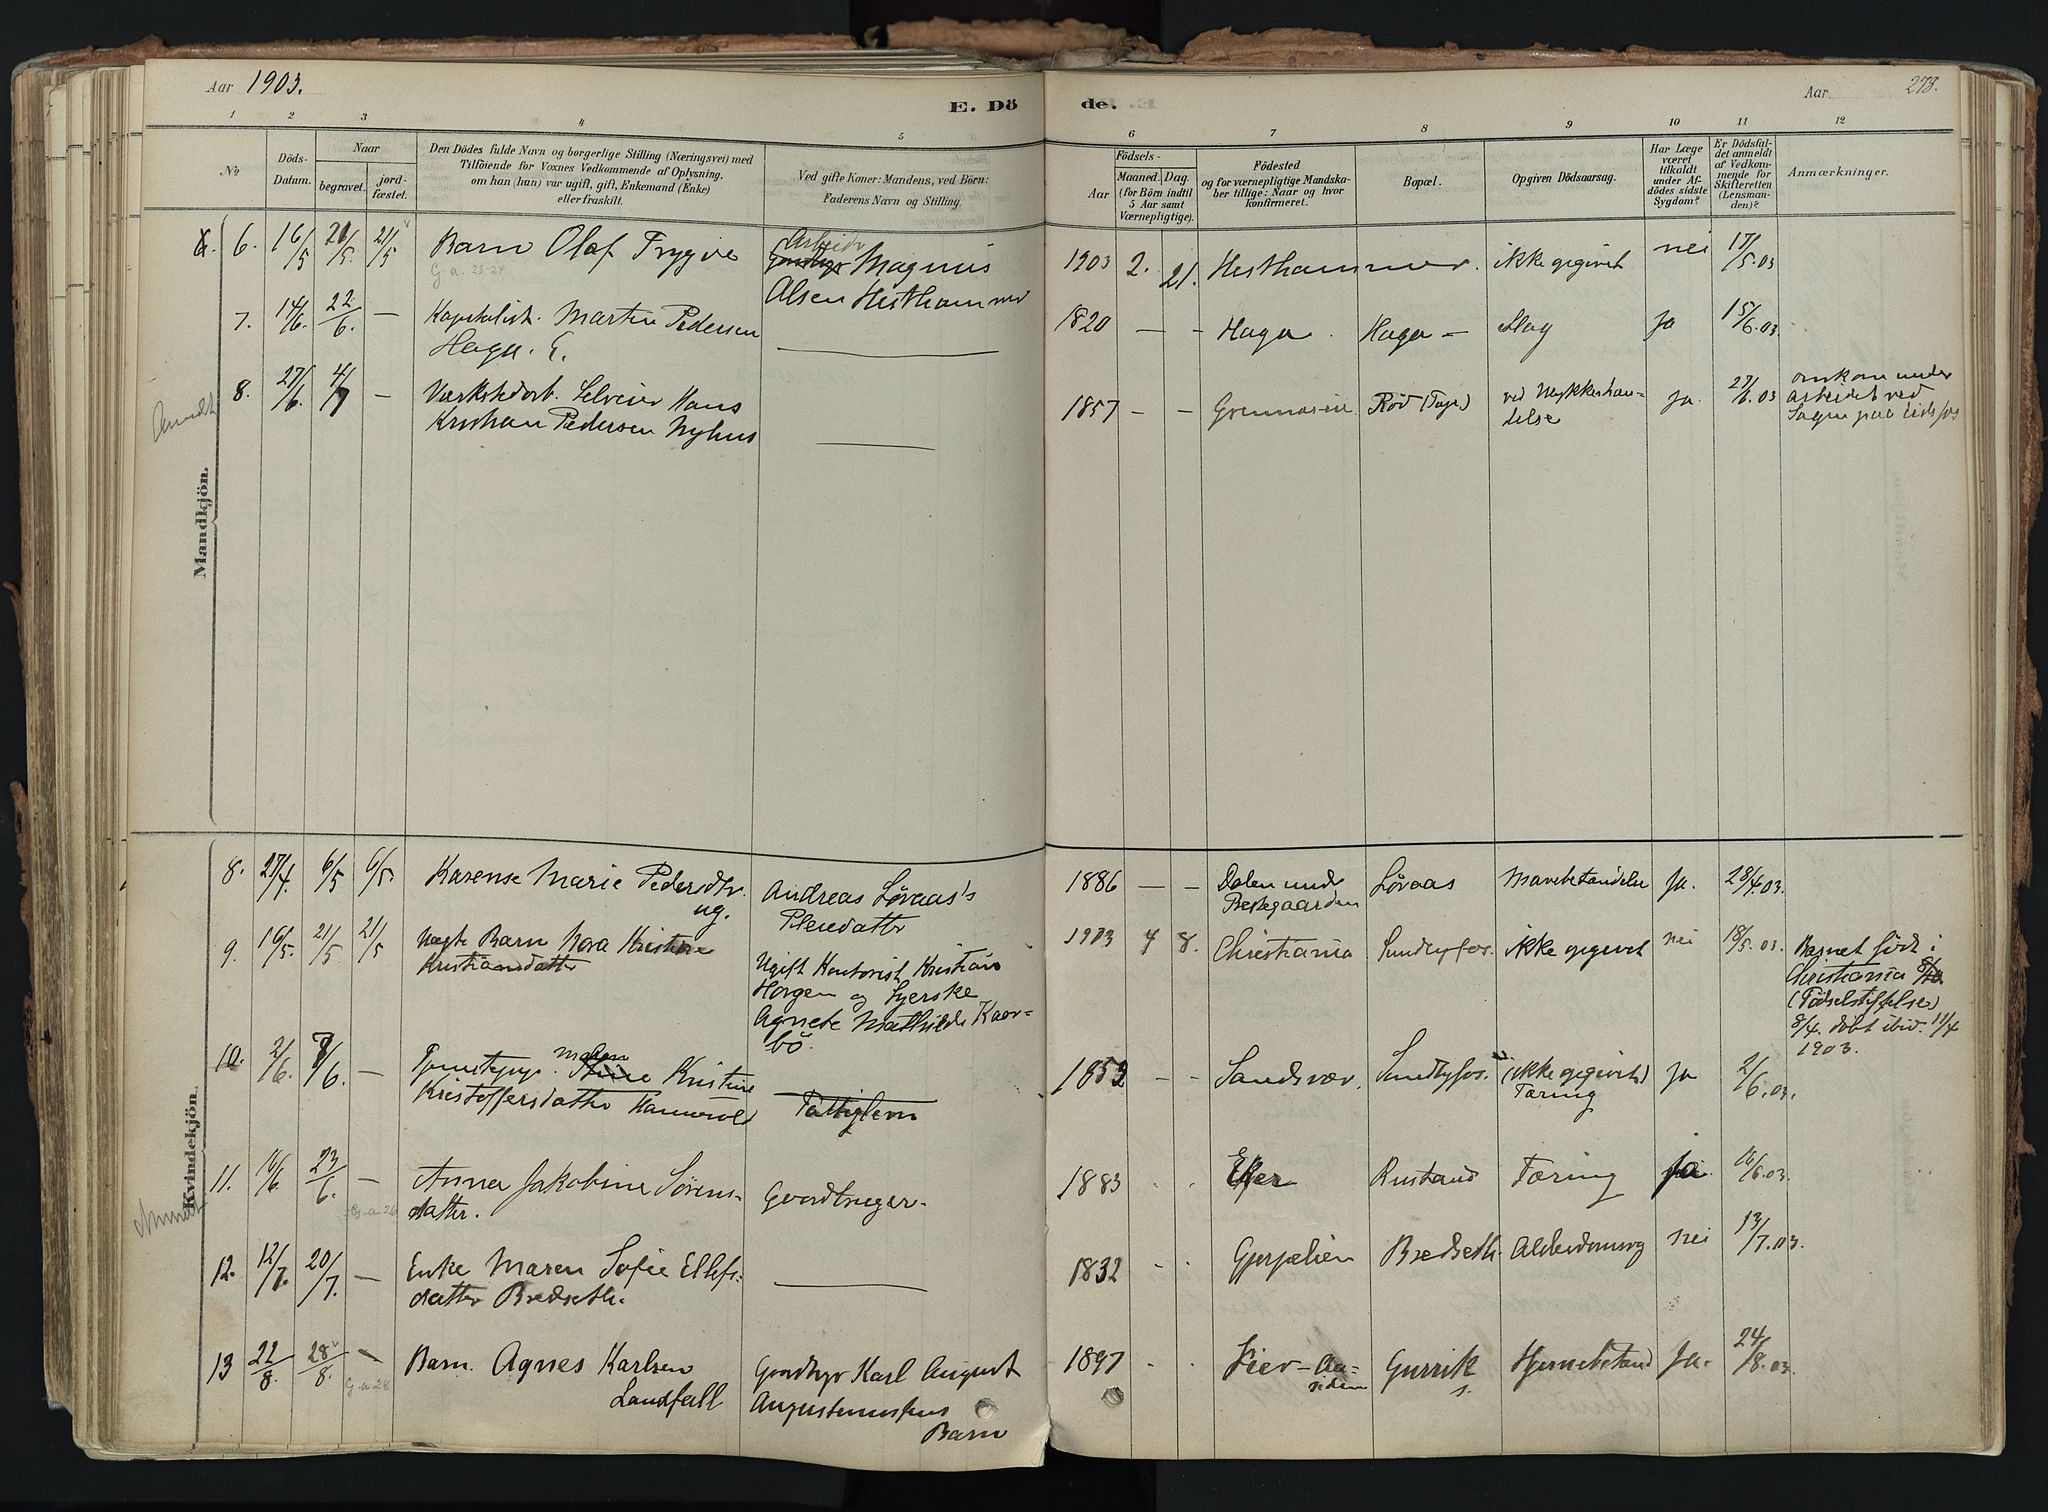 Aar 1903.
E. Dö
de.
Aar
278.
1 2 3 4 5
6 7 8 9 10 11 12
No
Döds-
Datum.
Naar
begravet.
jord-
fæstet.
Den Dödes fulde Navn og borgerlige Stilling (Næringsvei) med
Tilföiende for Voxnes Vedkommende af Oplysning,
om han (hun) var ugift, gift, Enkemand (Enke)
eller fraskilt.
Ved gifte Koner: Mandens, ved Börn:
Faderens Navn og Stilling.
Födsels-
Aar
Maaned. Dag.
(for Börn indtil
5 Aar samt
Værnepligtige).
Födested
og for værnepligtige Mandska-
ber tillige: Naar og hvor
konfirmeret.
Bopæl.
Opgiven Dödsaarsag.
Har Læge
været
tilkaldt
under Af-
dödes sidste
Sygdom?
Er Dödsfal-
det anmeldt
af Vedkom-
mende for
Skifteretten
(Lensman-
den)?
Anmærkninger.
Mandkjön.
6. 16/5 20/5. 21/5 Barn Olaf Trygve
G a. 23-24
Arbeidr
Magnus
Olsen Hesthammer
1903 2. 21. Hesthammer. ikke opgivet nei 17/5.03
7. 14/6. 22/6. — Kapitalist. Martin Pedersen
Haga. E.
1820 — — Haga. Haga — Slag Ja 15/6.03
8. 27/6. 4/7 — Værkstedarb. Selveier Hans
Kristian Pedersen Nyhus
1857 - - Rød ved Ulykkeshæn-
delse
Ja. 27/6.03
omkom under
arbeidet ved
Sagen paa Eidsfos
Kvindekjön.
8. 27/4. 6/5 6/5. Karense Marie Pedersdtr.
ug.
Andreas Løvaas's
Pleiedatter
1886 — — Dalen undr
Prestegaarden
Løvaas Mavebetændelse Ja. 28/4.03.
9. 16/5. 21/5 21/5 Uægte Barn Nora Kristine
Kristiansdatter
Ugift Kontorist Kristian
Horgen og Syerske
Agnete Mathilde Kaar-
bö.
1903 4 8. Christiania Sundbyfos. ikke opgivet nei 18/5.03.
Barnet født i
Christiania
(Fødselsstiftelse)
8/4. døbt ibid. 11/4
1903.
10. 2/6. 8/6. — Tjenestepige. Maren Kristine
Kristoffersdatter
Fattiglem
1852 - - Sandsvær. Sundbyfos. (ikke opgivet)
Tæring
Ja 2/6.03.
11. 16/6. 23/6. — Anna Jakobine Sørens-
datter.
G a 26
Gaardbruger.
1883 Eker Rustand Tæring Ja. 16/6.03.
12. 12/7. 20/7. — Enke Maren Sofie Ellefs-
datter Bredseth.
1832 Bredseth. Alderdomssvag nei 13/7.03.
13 22/8. 28/8. — Barn. Agnes Karlsen
Landfall
G a 28
Gaardbgr Karl August
Barn
1897 Lier - Aa-
sidem
Hjernebetænd Ja. 24/8.03.